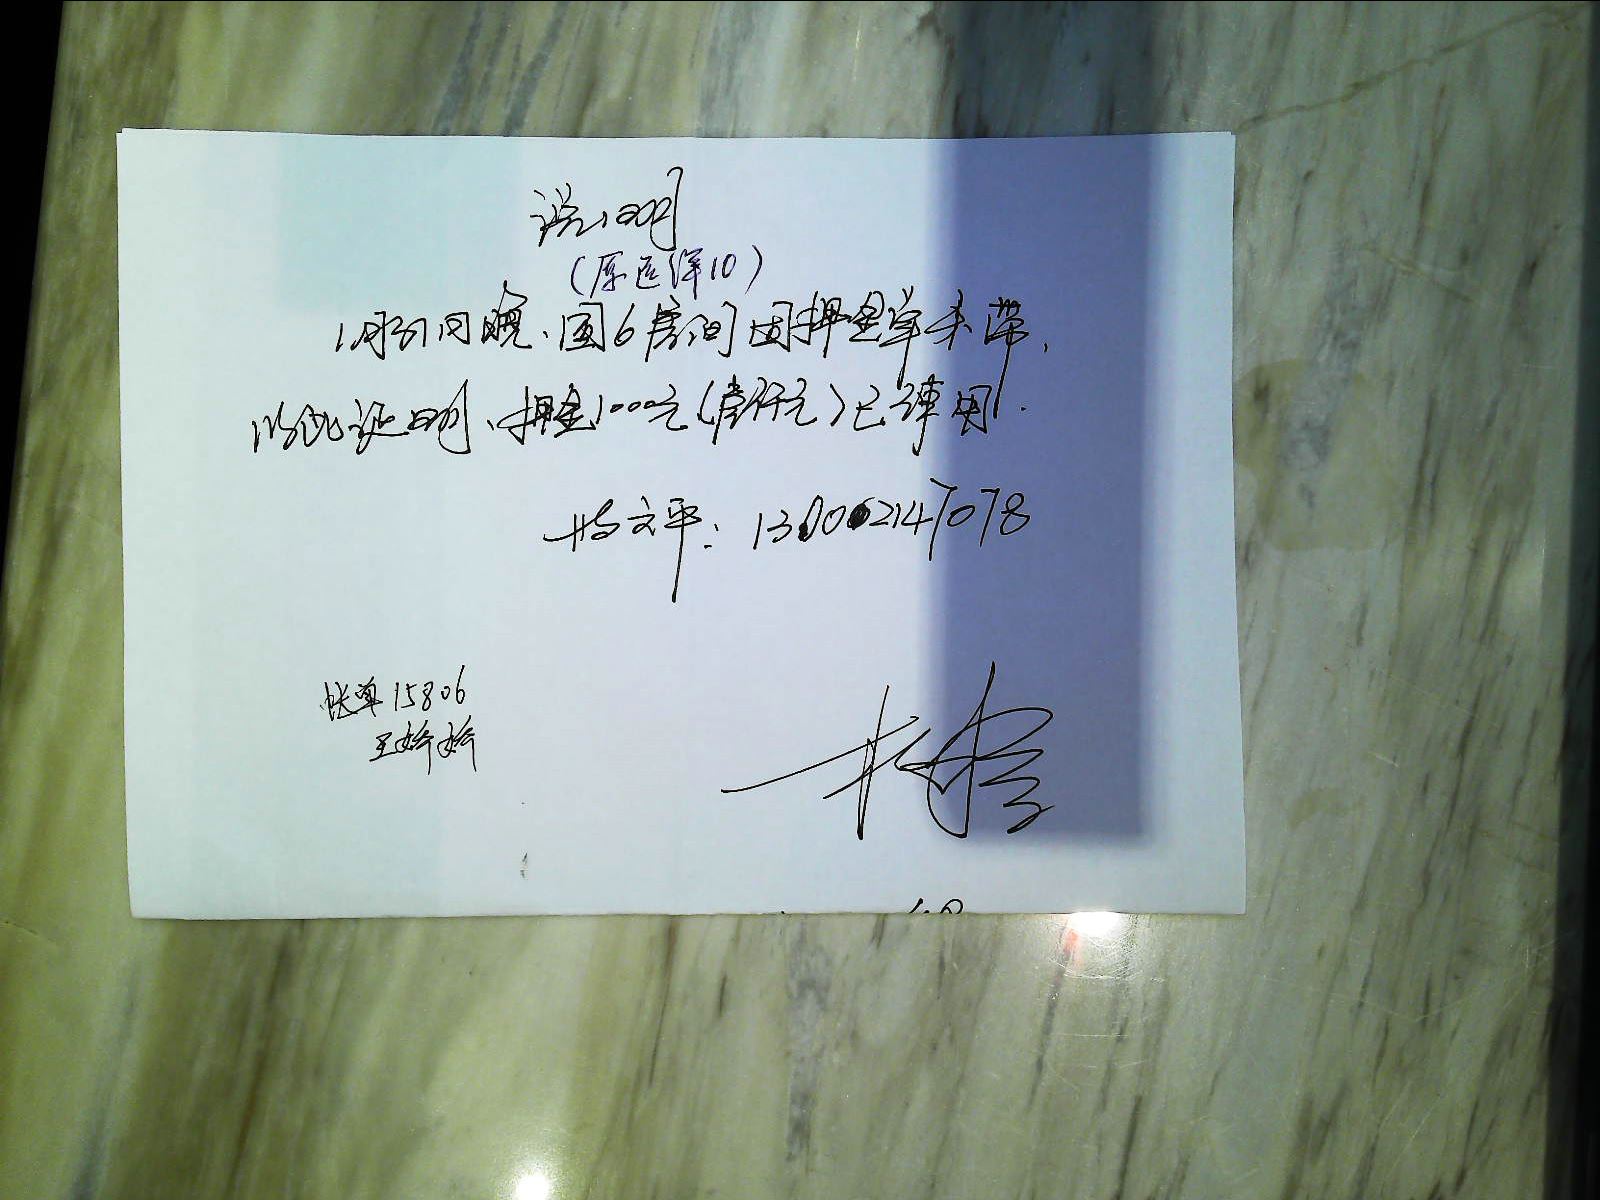 说明
(原远洋10)
1月31日晚、国6房间因押金单未带,
以此证明、押金1000元(壹仟元)已使用.
文平: 130062147078
帐单15806
王娇娇